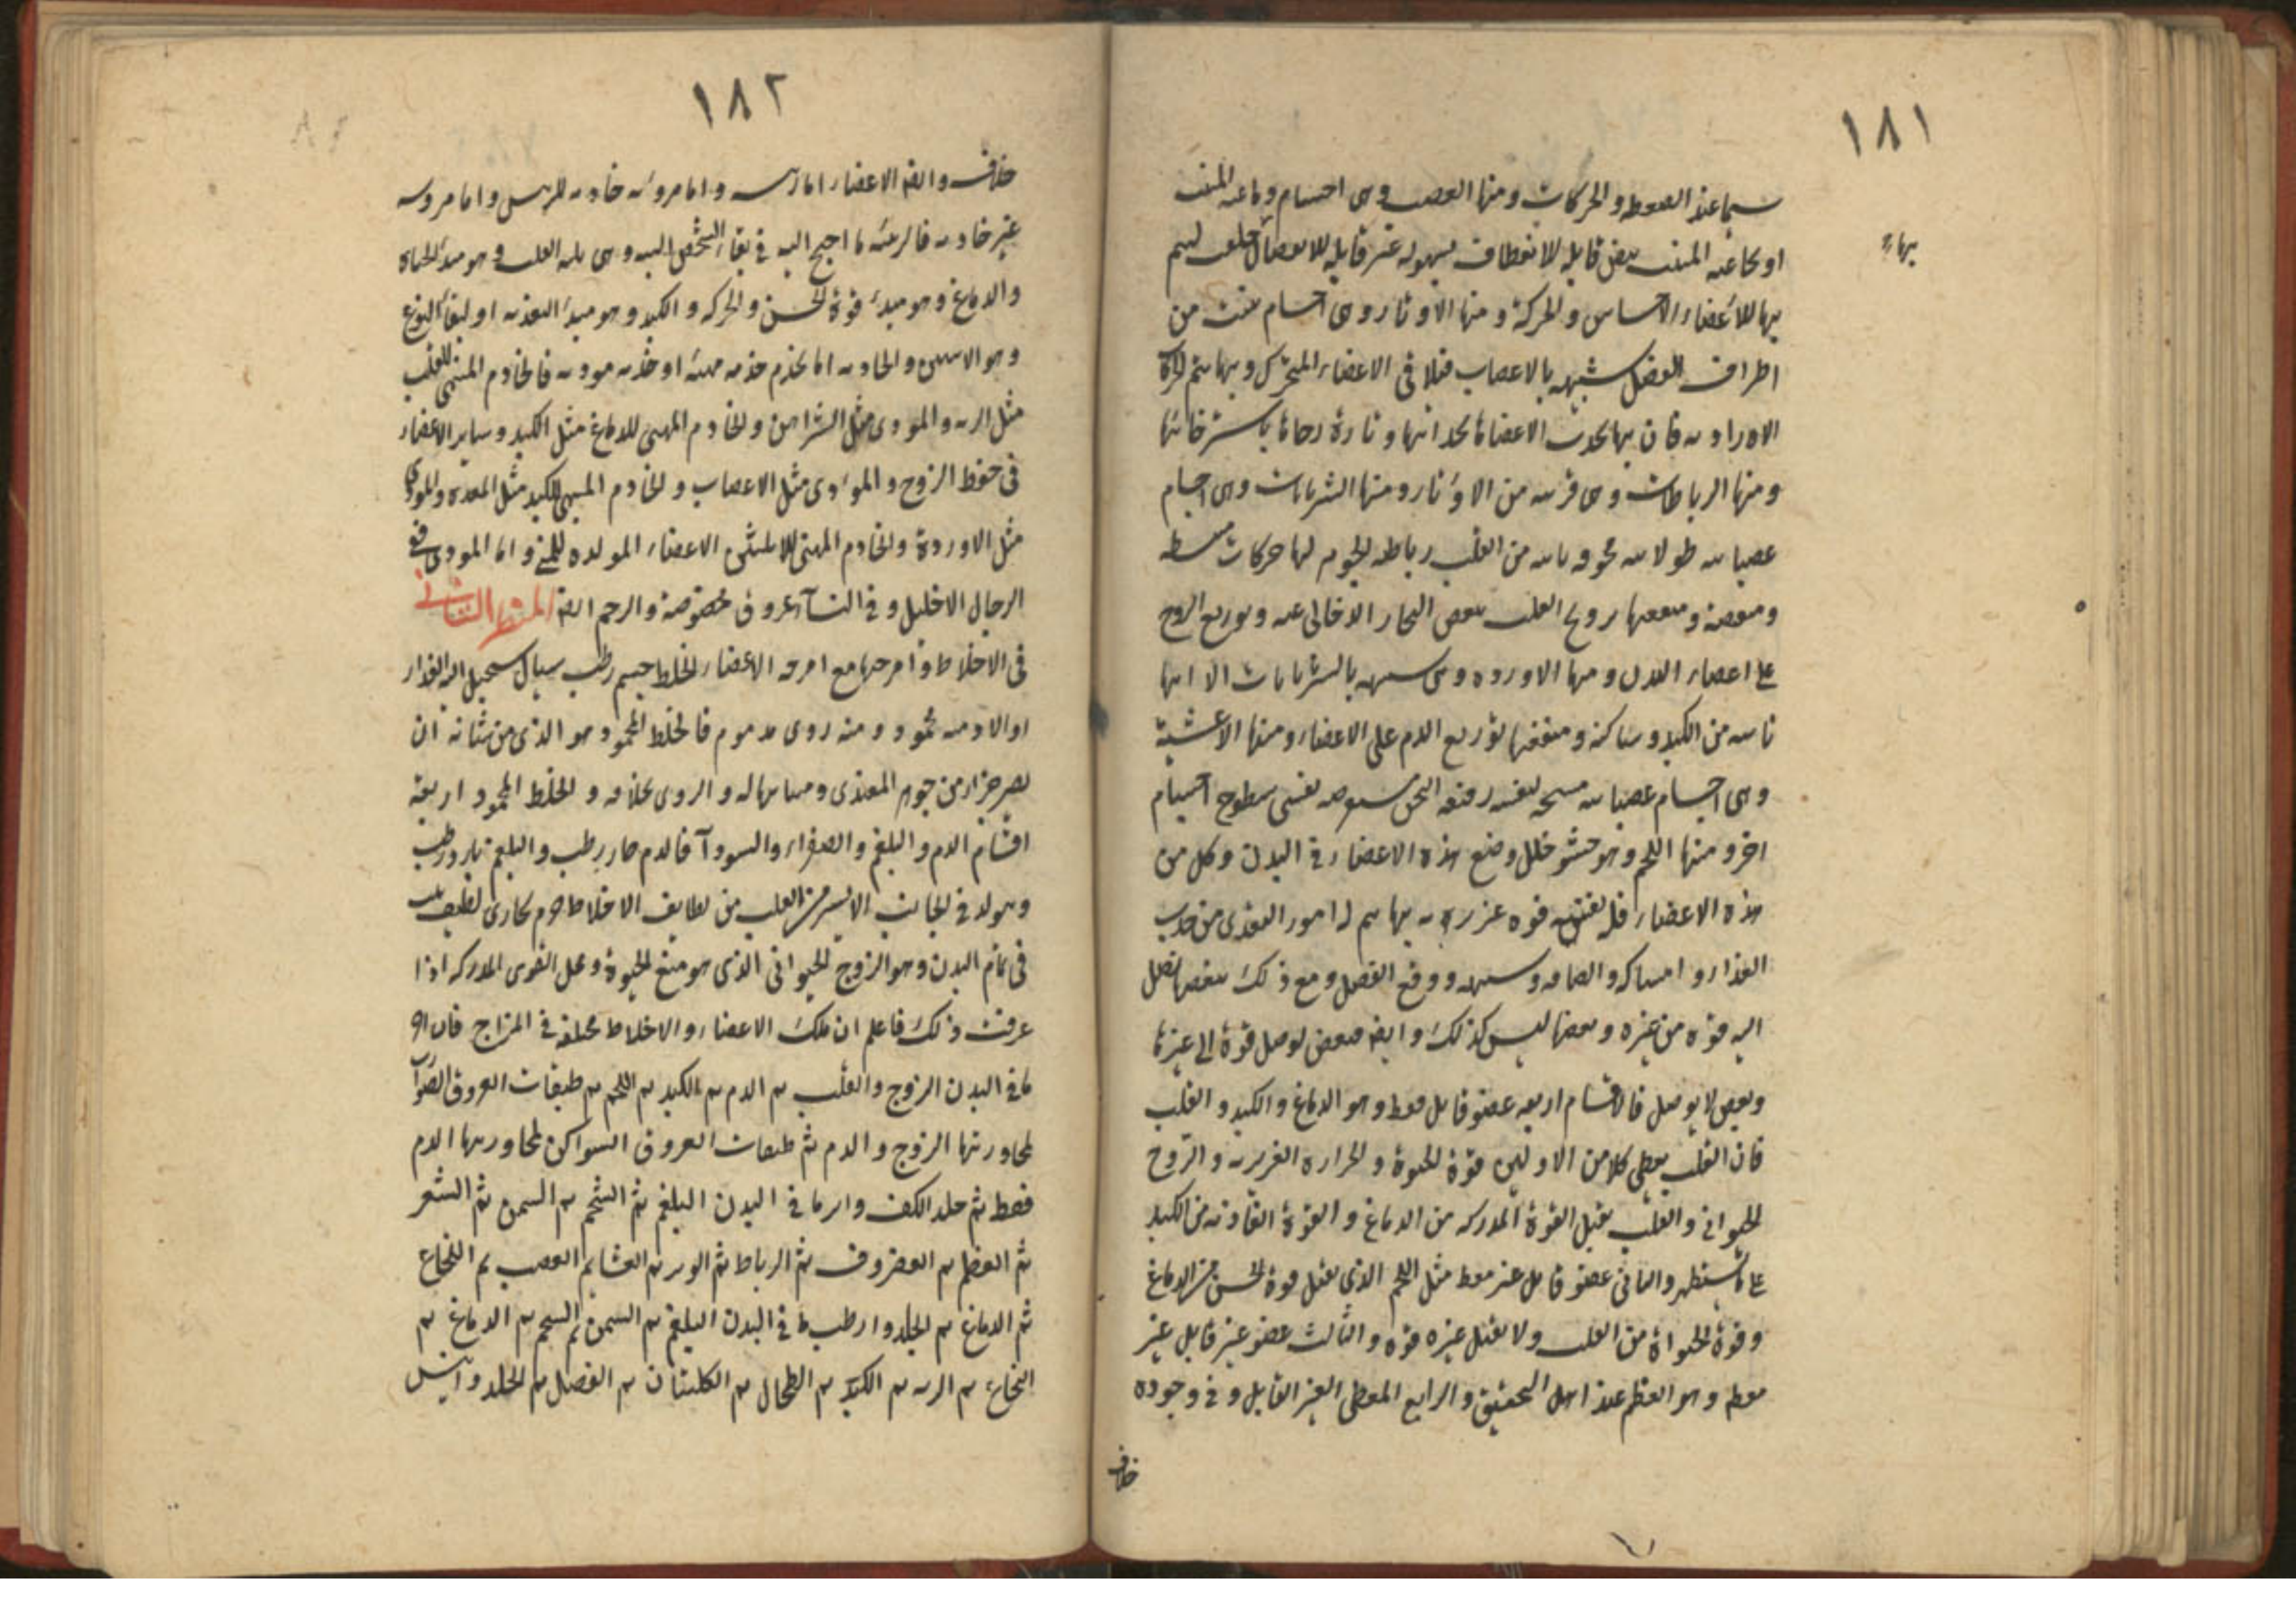 ١٨١
سيما عند الضغط والحركات ومنها العصب وهى اجسام دماغية المنبت
بها
او نخاعية المنبت بيض قابلة للانعطاف بسهوله غير قابلة للانفصال خلقت ليتم
بها للأعضاء الاحساس والحركة ومنها الاوتار وهى اجسام تنبت من
اطراف العضل شبيهه بالاعصاب فتلاقى الاعضاء المتحركة وبها يتم الحركات
الارادية فان بها يحدث الاعضاء تارة رخاوة باسترخائها
ومنها الرباطات وهى قريبه من الاوتار ومنها الشريانات وهى اجسام
عصبانيه طولانيه مجوفه نابته من القلب رباطيه الجوهر لها حركات منبسطه
ومنقبضة ومنفعتها ترويح القلب ونفض البخار الدخانى عنه وتوزيع الروح
على اعضاء البدن ومنها الاورده وهى شبيهه بالشريانات الا انها
نابته من الكبد وساكنه ومنفعتها توزيع الدم على الاعضاء ومنها الاغشية
وهى اجسام عصبانيه منتسجه رقيقه الثخن مستعرضه تغشى سطوح اجسام
اخر ومنها اللحم وهو حشو خلل وضع هذه الاعضاء فى البدن وكل من
هذه الاعضاء فله فى نفسه قوه غريزيه بها يتم له امور التغذى من جذب
الغذاء وامساكه والصاقه وتشبيهه ودفع الفضل ومع ذلك بعضها يصل
اليه قوه من غيره وبعضها ليس كذلك وايضا فبعض يوصل قوة الى غيره
وبعض لا يوصل فالاقسام اربعه عضو قابل معط وهو الدماغ والكبد والقلب
فان القلب يعطى كلا من الاولين قوة الحيوة والحراره الغريزيه والروح
الحيوانى والقلب يقبل القوة المدركه من الدماغ والقوة الغاذيه من الكبد
على ما ستظهر والثانى عضو قابل غير معط مثل اللحم الذى يقبل قوة الحس من الدماغ
وقوة الحيواة من القلب ولا يقبل غيره قوه والثالث عضو غير قابل غير
معط وهو العظم عند اهل التحقيق والرابع المعطى الغير القابل وفى وجوده
خلاف
١٨٢
خلاف وايضا الاعضاء اما رئيسه واما مرؤسه خادمه للرئيس واما مرؤسه
غير خادمه فالرئيسه ما احتيج اليه فى بقاء الشخص اليه وهى ثلثه القلب وهو مبدء الحياه
والدماغ وهو مبدء قوة الحس والحركه والكبد وهو مبدء التغذيه او لبقاء النوع
وهو الانثيين والخادمه اما يخدم خدمه مهيئه او خدمه موديه فالخادم المهيى للقلب
مثل الريه والمودى مثل الشرايين والخادم المهيى للدماغ مثل الكبد وساير الاعضاء
فى حفظ الروح والمودى مثل الاعصاب والخادم المهيى للكبد مثل المعده والمودى
مثل الاوردة والخادم المهيى للانثيين الاعضاء المولده للمنى واما المودى ففى
الرجال الاحليل وفى النسآء عروق مخصوصة والرحم ايضا المنظر الثانى
فى الاخلاط وامزجتها مع امزجه الاعضاء الخلط جسم رطب سيال يستحيل اليه الغذاء
اولا ومنه محمود ومنه ردى مذموم فالخلط المحمود هو الذى من شانه ان
يصير جزء من جوهر المغتذى ومشابها له والردى بخلافه والخلط المحمود اربعة
اقسام الدم والبلغم والصفراء والسودآ فالدم حار رطب والبلغم بارد رطب
ويتولد فى الجانب الايسر من القلب من لطايف الاخلاط جرم بخارى لطيف
فى تمام البدن وهو الروح الحيوانى الذى هو منبع الحيوة ومحل القوى المدركه اذا
عرفت ذلك فاعلم ان تلك الاعضاء والاخلاط مختلفة فى المزاج فان احر
ما فى البدن الروح والقلب ثم الدم ثم الكبد ثم اللحم ثم طبقات العروق الضوآرب
لمجاورتها الروح والدم ثم طبقات العروق السواكن لمجاورتها الدم
فقط ثم جلد الكف وابرد ما فى البدن البلغم ثم الشحم ثم السمن ثم الشعر
ثم العظم ثم الغضروف ثم الرباط ثم الوتر ثم الغشا ثم العصب ثم النخاع
ثم الدماغ ثم الجلد وارطب ما فى البدن البلغم ثم السمن ثم الشحم ثم الدماغ ثم
النخاع ثم الريه ثم الكبد ثم الطحال ثم الكليتان ثم العضل ثم الجلد وايبس